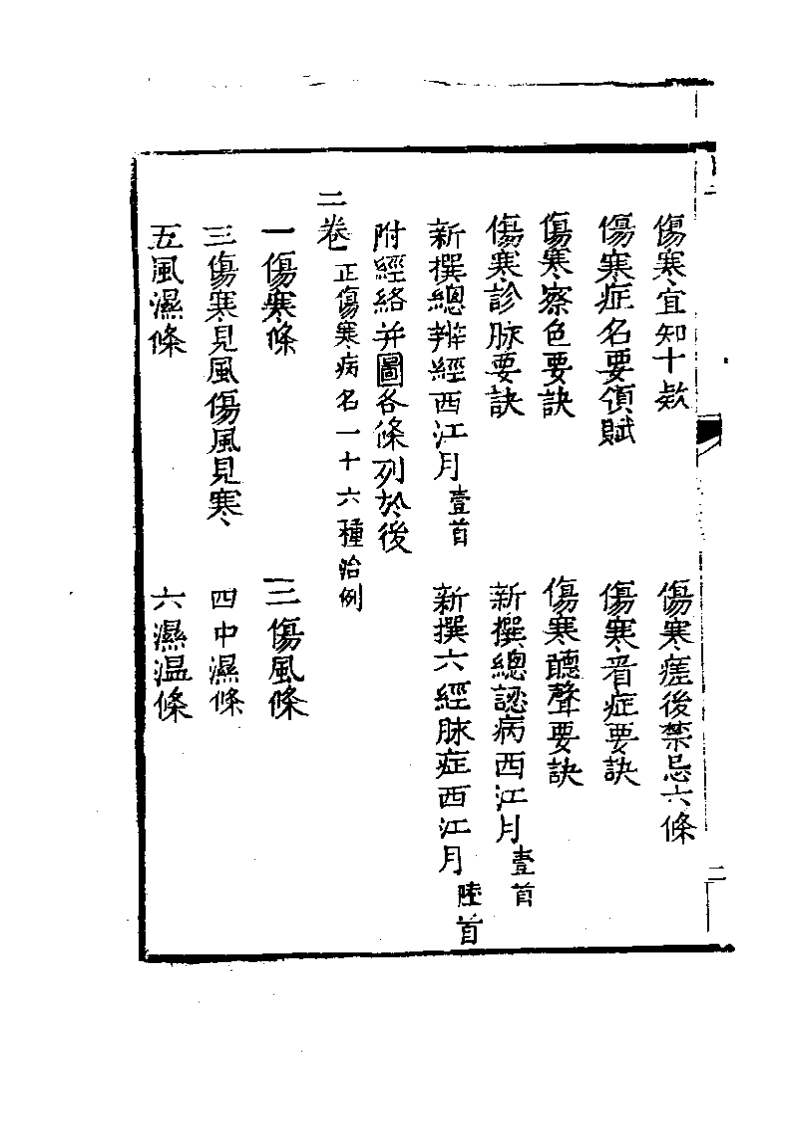 傷寒宜知十欵　傷寒瘥後禁忌六條
傷寒症名要領賦　傷寒看症要訣
傷寒察色要訣　傷寒聽聲要訣
傷寒診脉要訣　新撰總認病西江月壹首
新撰總辨經西江月壹首　新撰六經脉症西江月陸首
附經絡并圖各條列於後
二卷　正傷寒病名一十六種治例
一傷寒條　二傷風條
三傷寒見風傷風見寒　四中濕條
五風濕條　六濕温條
二